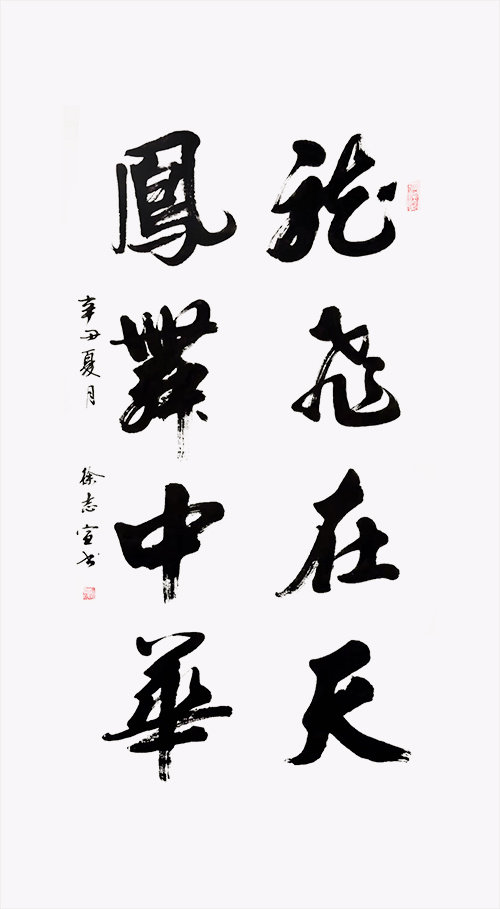 龍飛在天
鳳舞中華
辛丑夏月 徐志宣书